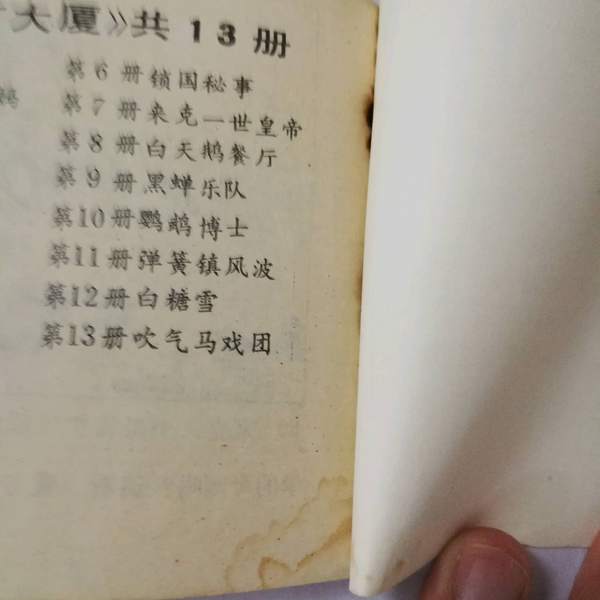 大厦》共13册
第6册锁国秘事
第7册来克一世皇帝
第8册白天鹅餐厅
第9册黑蝉乐队
第10册鹦鹉博士
第11册弹簧镇风波
第12册白糖雪
第13册吹气马戏团